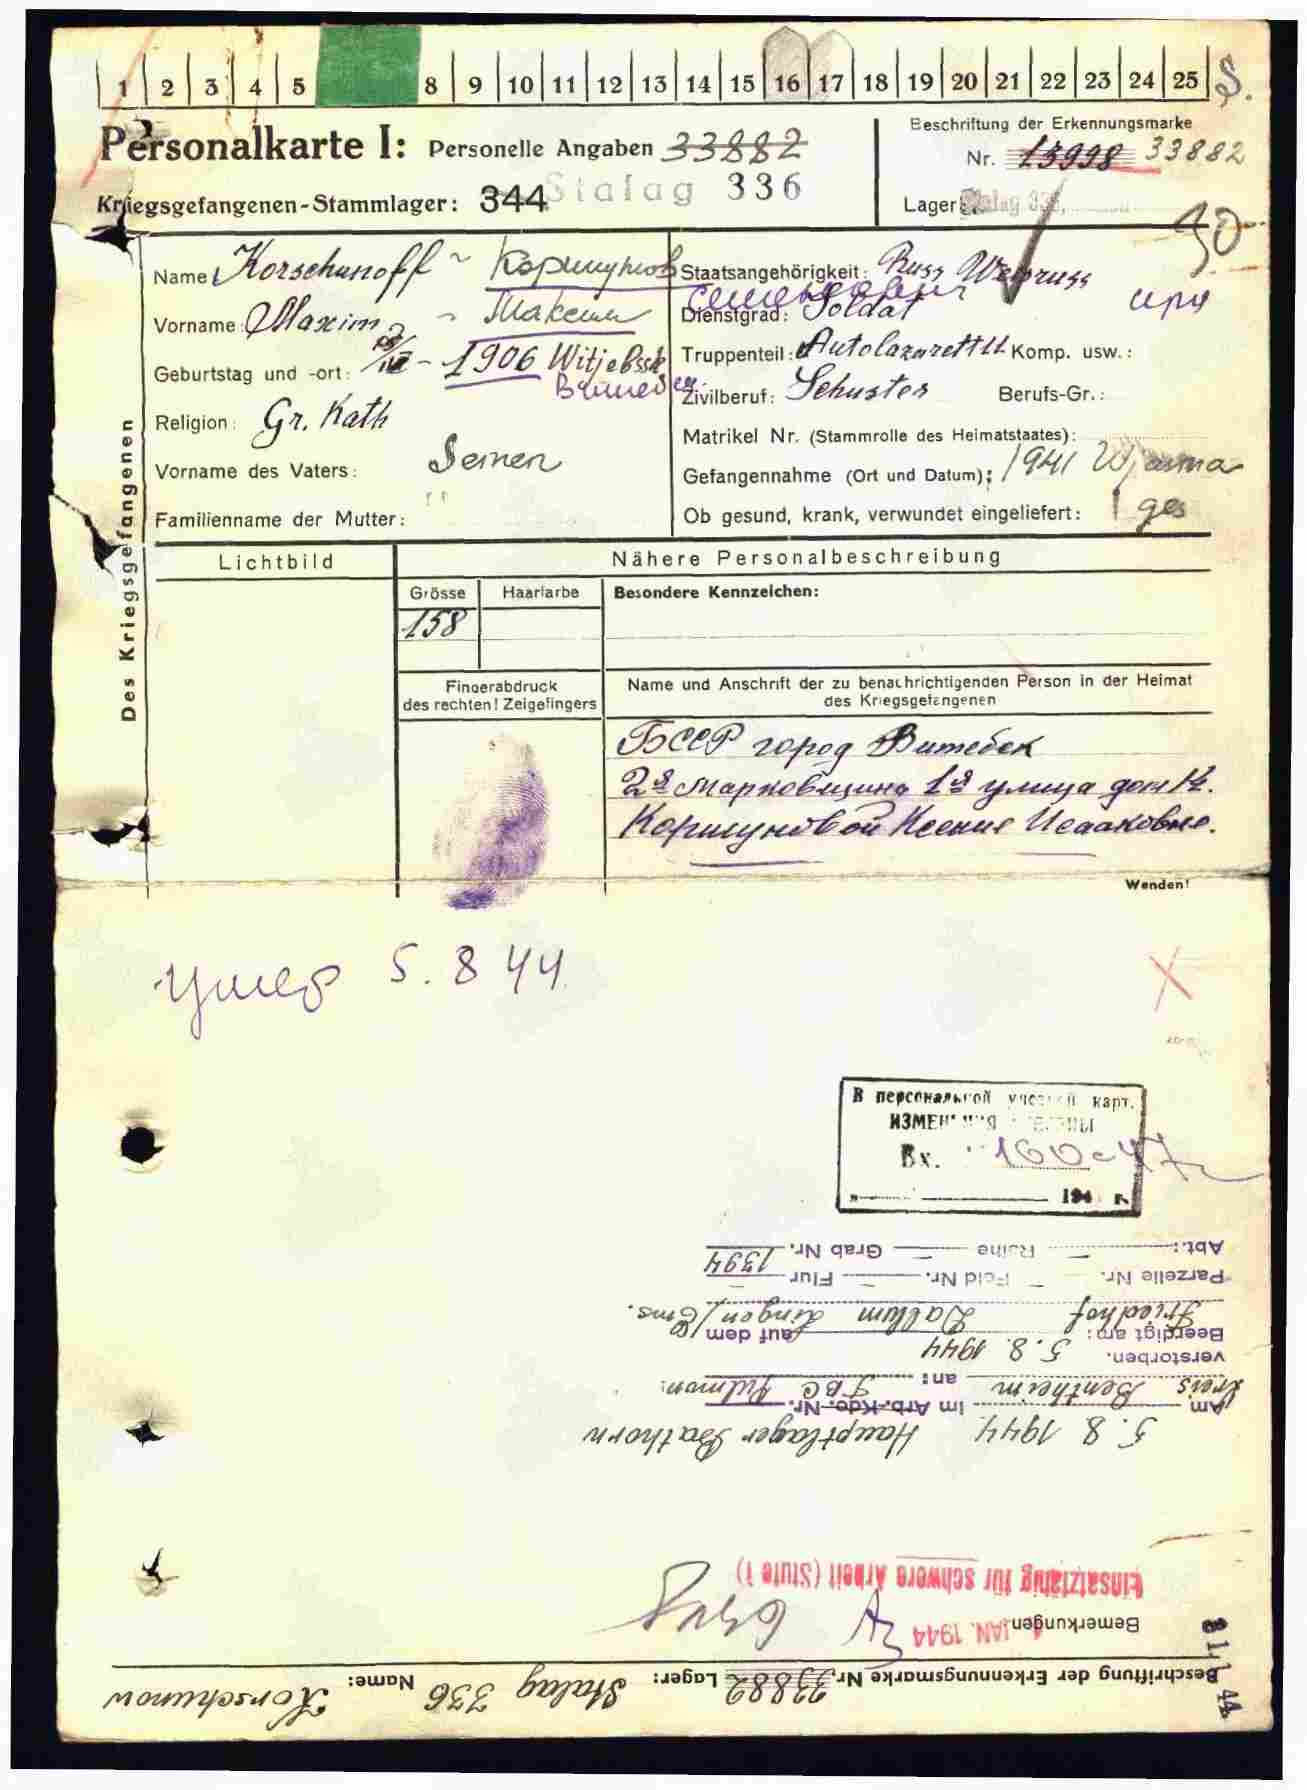 1 2 3 4 5 8 9 10 11 12 13 14 15 16 17 18 19 20 21 22 23 24 25 S.
Personalkarte I: Personelle Angaben 33882
Beschriftung der Erkennungsmarke
Nr. 13998 33882
Kriegsgefangenen-Stammlager: 344 Stalag 336
Lager: Stalag 336
Des Kriegsgefangenen
Name: Korschunoff ~ Коршунов
Vorname: Maxim ~ Максим
Geburtstag und -ort: 1906 Witjebssk
Religion: Gr. Kath
Vorname des Vaters: Semen
Familienname der Mutter:
Staatsangehörigkeit: Russ Weisruss
Семенович
Dienstgrad: Soldat
Truppenteil: Autolazarett Komp. usw.:
Zivilberuf: Schuster Berufs-Gr.:
Matrikel Nr. (Stammrolle des Heimatstaates):
Gefangennahme (Ort und Datum): 1941 Wjasma
Ob gesund, krank, verwundet eingeliefert: ges
Lichtbild
Nähere Personalbeschreibung
Grösse Haarfarbe Besondere Kennzeichen:
158
Fingerabdruck
des rechten! Zeigefingers
Name und Anschrift der zu benachrichtigenden Person in der Heimat
des Kriegsgefangenen
БССР город Витебск
2я Марковщина 1я улица дом 14.
Коршуновой Ксение Исааковне.
Wenden!
умер 5.8 44
В персональной учетной карт.
ИЗМЕНЕНИЯ
Вх. 160-47
194 г.
Beschriftung der Erkennungsmarke Nr. 33882 Lager: Stalag 336 Name: Korschunow
Bemerkungen
4. JAN. 1944
Einsatzfähig für schwere Arbeit (Stufe 1)
5. 8. 1944 Hauptlager Bathorn
Am im Arb.-Kdo. Nr.
Kreis Bentheim an: TBC Pulmon.
verstorben. 5. 8. 1944
Beerdigt am: auf dem
Friedhof Dalum Lingen/Ems.
Parzelle Nr. Feld Nr. Flur
Abt.: Reihe Grab Nr. 1394